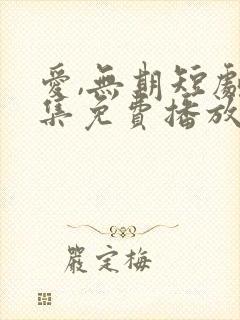 愛,無期短劇
集免費播放
嚴定梅